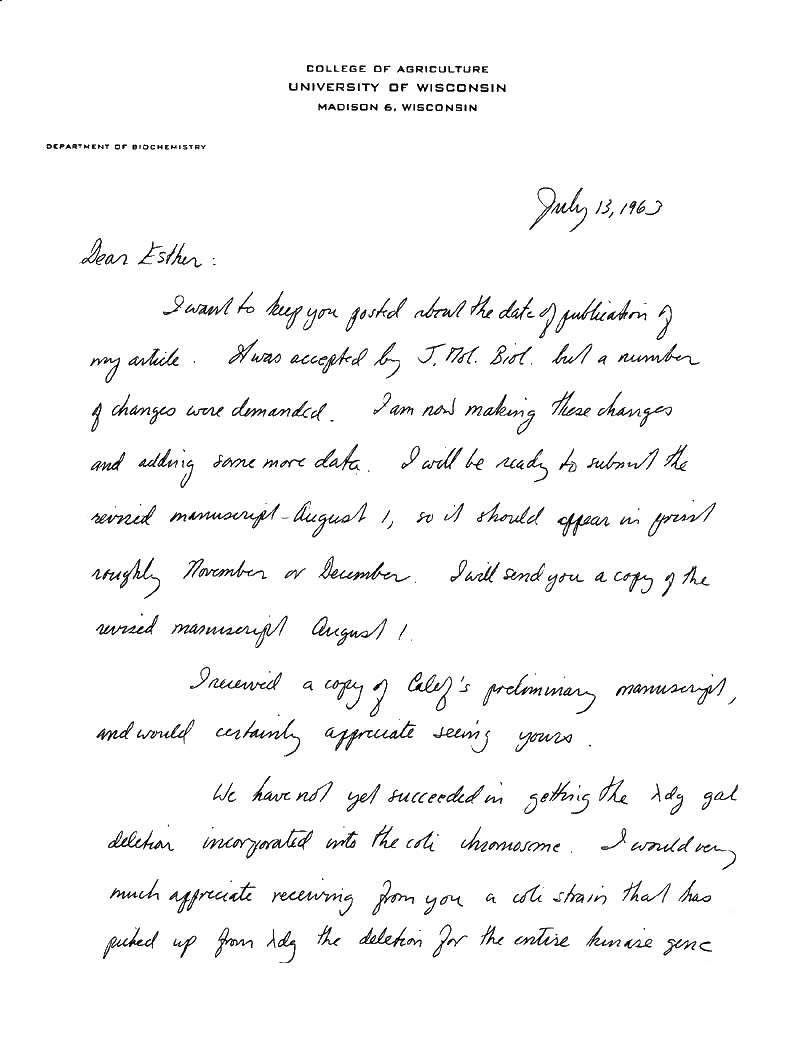 COLLEGE OF AGRICULTURE
UNIVERSITY OF WISCONSIN
MADISON 6, WISCONSIN
DEPARTMENT OF BIOCHEMISTRY
July 13, 1963
Dear Esther :
I want to keep you posted about the date of publication of
my article. It was accepted by J. Mol. Biol. but a number
of changes were demanded. I am now making these changes
and adding some more data. I will be ready to submit the
revised manuscript - August 1, so it should appear in print
roughly November or December. I will send you a copy of the
revised manuscript August 1.
I received a copy of Calef's preliminary manuscript,
and would certainly appreciate seeing yours.
We have not yet succeeded in getting the λdg gal
deletion incorporated into the coli chromosome. I would very
much appreciate receiving from you a coli strain that has
picked up from λdg the deletion for the entire kinase gene